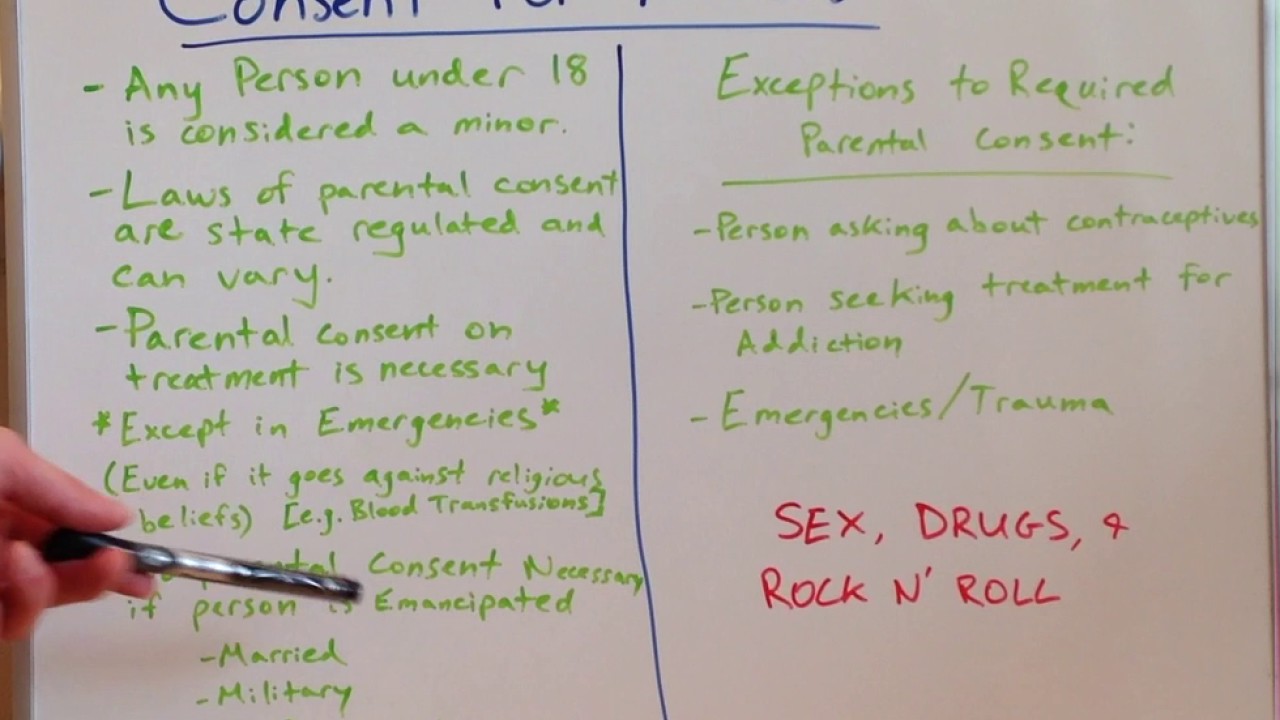 Consent For
- Any Person under 18
is considered a minor.
- Laws of parental consent
are state regulated and
can vary.
- Parental consent on
treatment is necessary
*Except in Emergencies*
(Even if it goes against religious
beliefs) [e.g. Blood Transfusions]
Consent Necessary
if person is Emancipated
- Married
- Military
Exceptions to Required
Parental Consent:
- Person asking about contraceptives
- Person seeking treatment for
Addiction
- Emergencies/Trauma
SEX, DRUGS, &
ROCK N' ROLL